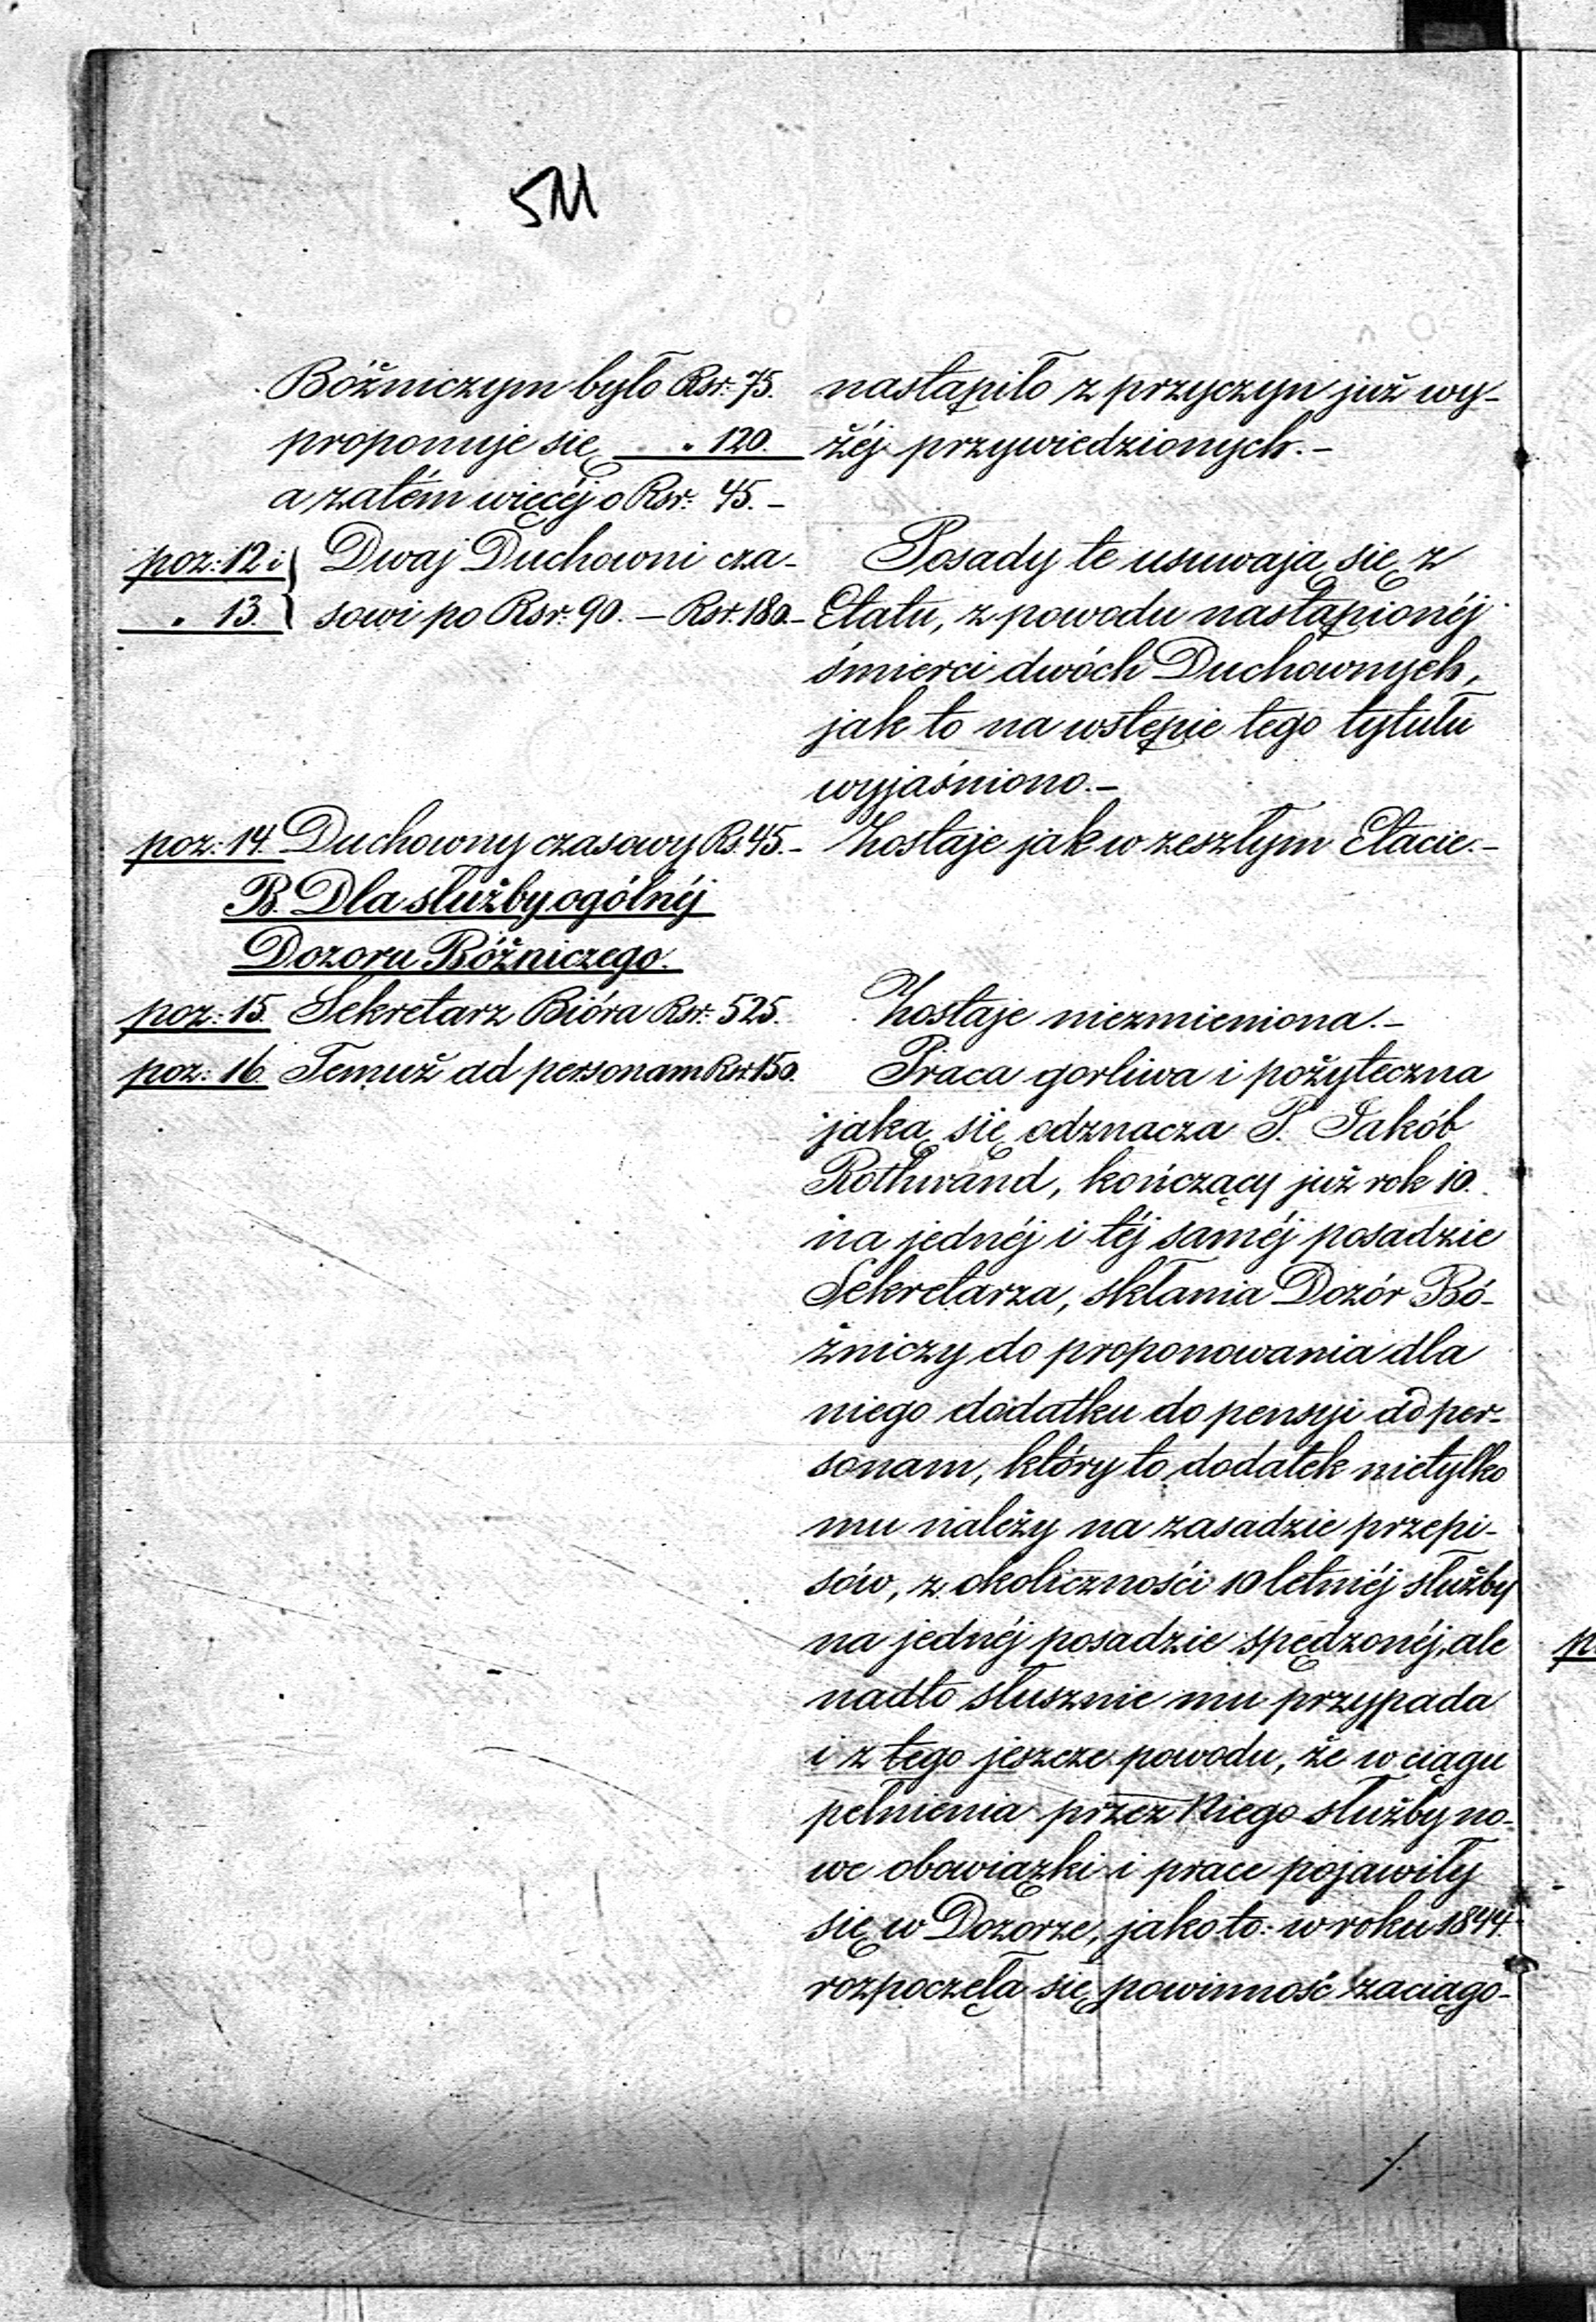 511
Bóżniczym było Rsr: 75.
proponuje się " 120.
a zatém więcéj o Rsr: 45.-
poz: 12 i
" 13.
Dwaj Duchowni cza-
sowi po Rsr: 90. — Rsr. 180.-
poz: 14. Duchowny czasowy Rs. 45.-
B. Dla służby ogólnéj
Dozoru Bóżniczego.
poz: 15. Sekretarz Bióra Rsr: 525.
poz: 16. Temuż ad personam Rsr. 150.
nastąpiło z przyczyn już wy-
żéj przywiedzionych.-
Posady te usuwają się z
Etatu, z powodu nastąpionéj
śmierci dwóch Duchownych,
jak to na wstępie tego tytułu
wyjaśniono.-
Zostaje jak w zeszłym Etacie.-
Zostaje niezmieniona.-
Praca gorliwa i pożyteczna
jaką się odznacza P. Jakób
Rothwand, kończący już rok 10.
na jednéj i téj saméj posadzie
Sekretarza, skłania Dozór Bó-
żniczy do proponowania dla
niego dodatku do pensyi ad per-
sonam, który to dodatek nietylko
mu należy na zasadzie przepi-
sów, z okoliczności 10 letniéj służby
na jednéj posadzie spędzonéj, ale
nadto słusznie mu przypada
i z tego jeszcze powodu, że w ciągu
pełnienia przez Niego służby no-
we obowiązki i prace pojawiły
się w Dozorze, jako to: w roku 1844.
rozpoczęła się powinność zaciągo-